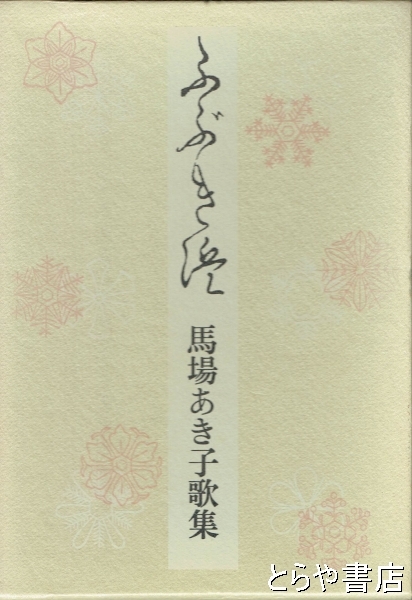 ふぶき浜
馬場あき子歌集
とらや書店